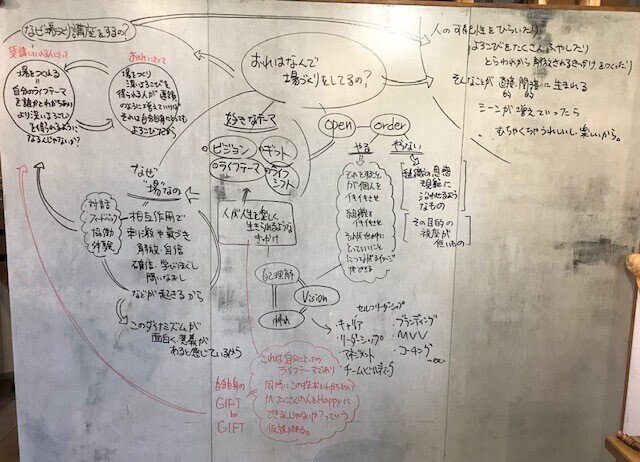 なぜ場づくり講座をするの?
受講してくれる人にとって
場をつくれる
=
自分のライフテーマ
を誰かとわかちあい
より深いよろこび
を得られるように
なるんじゃないか?
おれにとって
場をつくり
深いよろこびを
得られる人が
のように増えていけば
それは自分自身にとっても
よろこびだから
おれはなんで
場づくりをしてるの?
人の可能性をひらいたり
よろこびをたくさんふやしたり
とらわれから解放されるきっかけをつくったり
そんなことが直接的 間接的に生まれる
シーンが増えていったら
むちゃくちゃうれしいし楽しいから。
好きなテーマ
ビジョン
ギフト
ライフテーマ
ライフシフト
人が人生を楽しく
生きられるような
きっかけ
open
order
やる
やらない
それを扱うこと
が個人を
イキイキさせ
組織を
イキイキさせ
それが世の中に
とっていいこと
につながるイメージ
ができる
組織の思惑
規範に
沿わせるよう
なもの
その目的の
視座が
低いもの
なぜ
"場"なの
対話
フィードバック
協働
体験
相互作用で
刺激や気づき
解放・自信
確信・学びほぐし
問いなおし
などが起きるから
このダイナミズムが
面白く、意義が
あると感じているから
自己理解
Vision
・キャリア
・リーダーシップ
・マネジメント
・チームビルディング
セルフリーダーシップ
・ブランディング
・MVV
・コーチング
自分自身の
GIFT
by
GIFT
これは自分にとっての
ライフテーマであり
同時にこの探求とわかちあい
がたくさんの人をHappyに
できるんじゃないか?っていう
仮説がある。